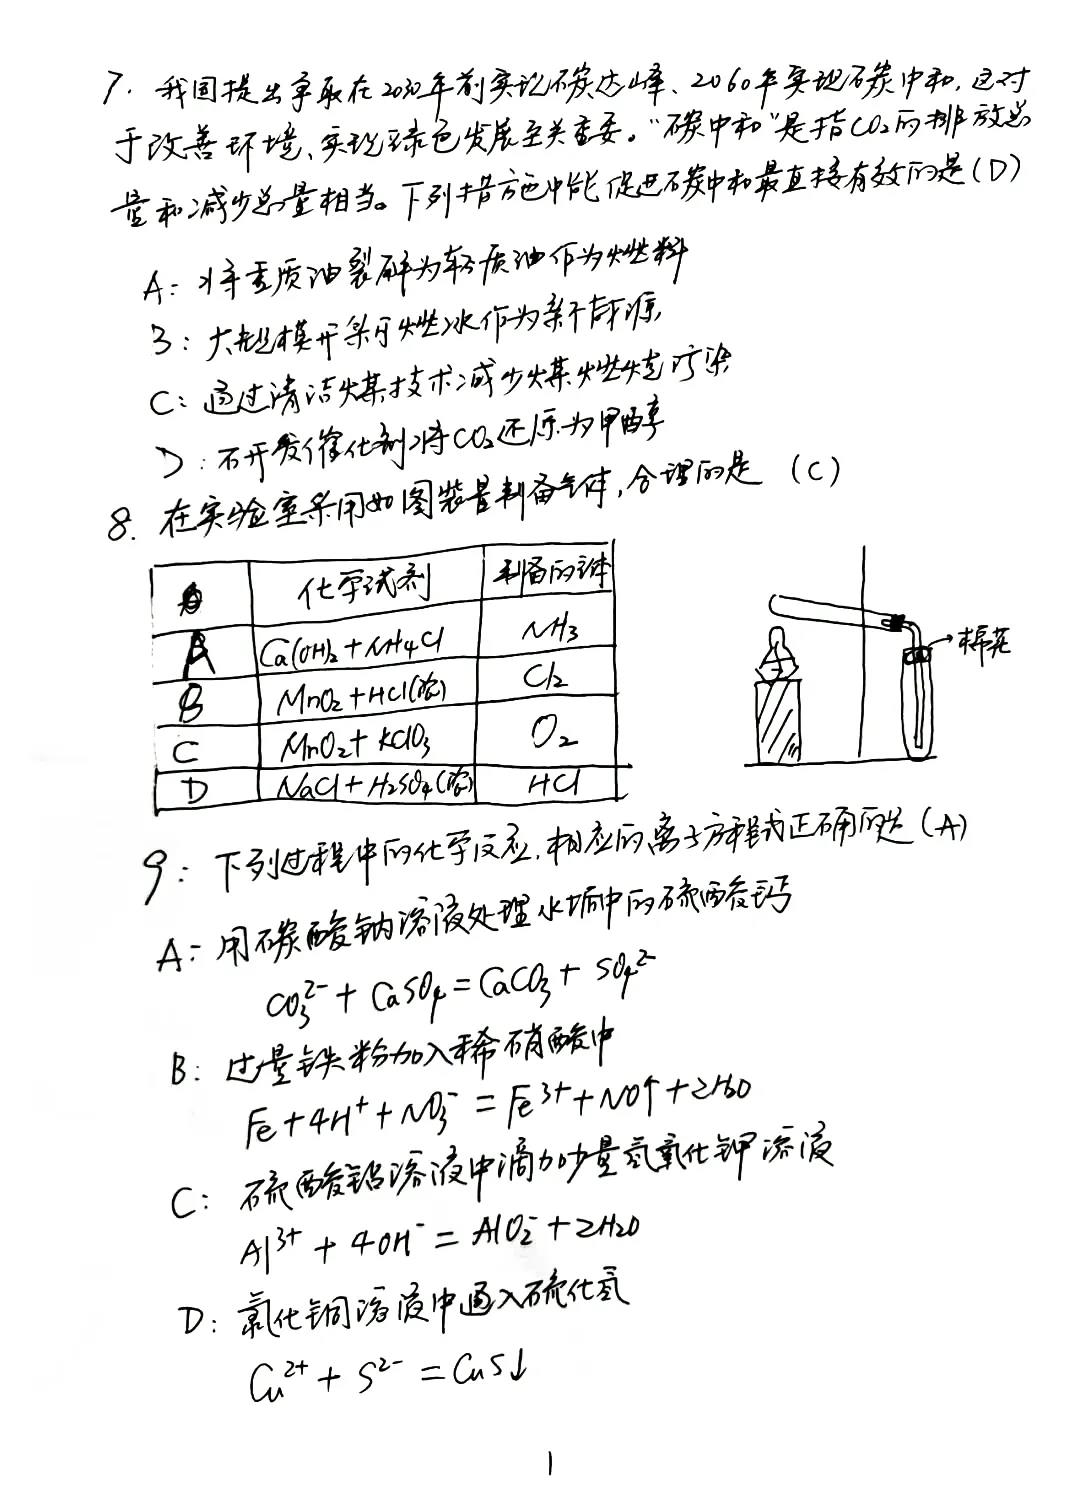 7. 我国提出争取在2030年前实现碳达峰、2060年实现碳中和,这对
于改善环境、实现绿色发展至关重要。“碳中和”是指CO₂的排放总
量和减少总量相当。下列措施中能促进碳中和最直接有效的是(D)
A: 将重质油裂解为轻质油作为燃料
B: 大规模开采可燃冰作为新能源
C: 通过清洁煤技术减少煤燃烧污染
D: 研开发催化剂将CO₂还原为甲醇
8. 在实验室采用如图装置制备气体,合理的是 (C)
化学试剂 制备的气体
A Ca(OH)₂+NH4Cl NH3
B MnO₂+HCl(浓) Cl₂
C MnO₂+KClO3 O₂
D NaCl+H₂SO4(浓) HCl
棉花
9: 下列过程中的化学反应,相应的离子方程式正确的是(A)
A: 用碳酸钠溶液处理水垢中的硫酸钙
CO₃²⁻+CaSO₄=CaCO₃+SO₄²⁻
B: 过量铁粉加入稀硝酸中
Fe+4H⁺+NO₃⁻=Fe³⁺+NO↑+2H₂O
C: 硫酸铝溶液中滴加少量氢氧化钾溶液
Al³⁺+4OH⁻=AlO₂⁻+2H₂O
D: 氯化铜溶液中通入硫化氢
Cu²⁺+S²⁻=CuS↓
1